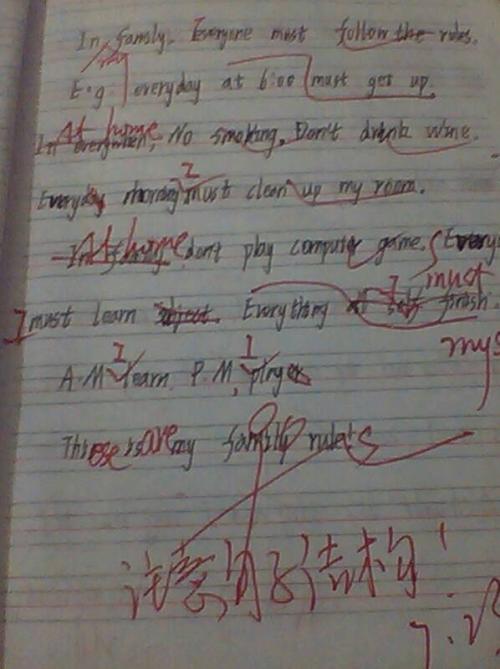 In my family. Everyone must follow the rules.
E.g. everyday at 6:00 must get up.
At home, No smoking. Don't drink wine.
Everyday morning I must clean up my room.
At home don't play computer game. Every
I must learn object. Everything I must finish
mys
A.M I learn P.M, I
These are my family rules
注意句子结构!